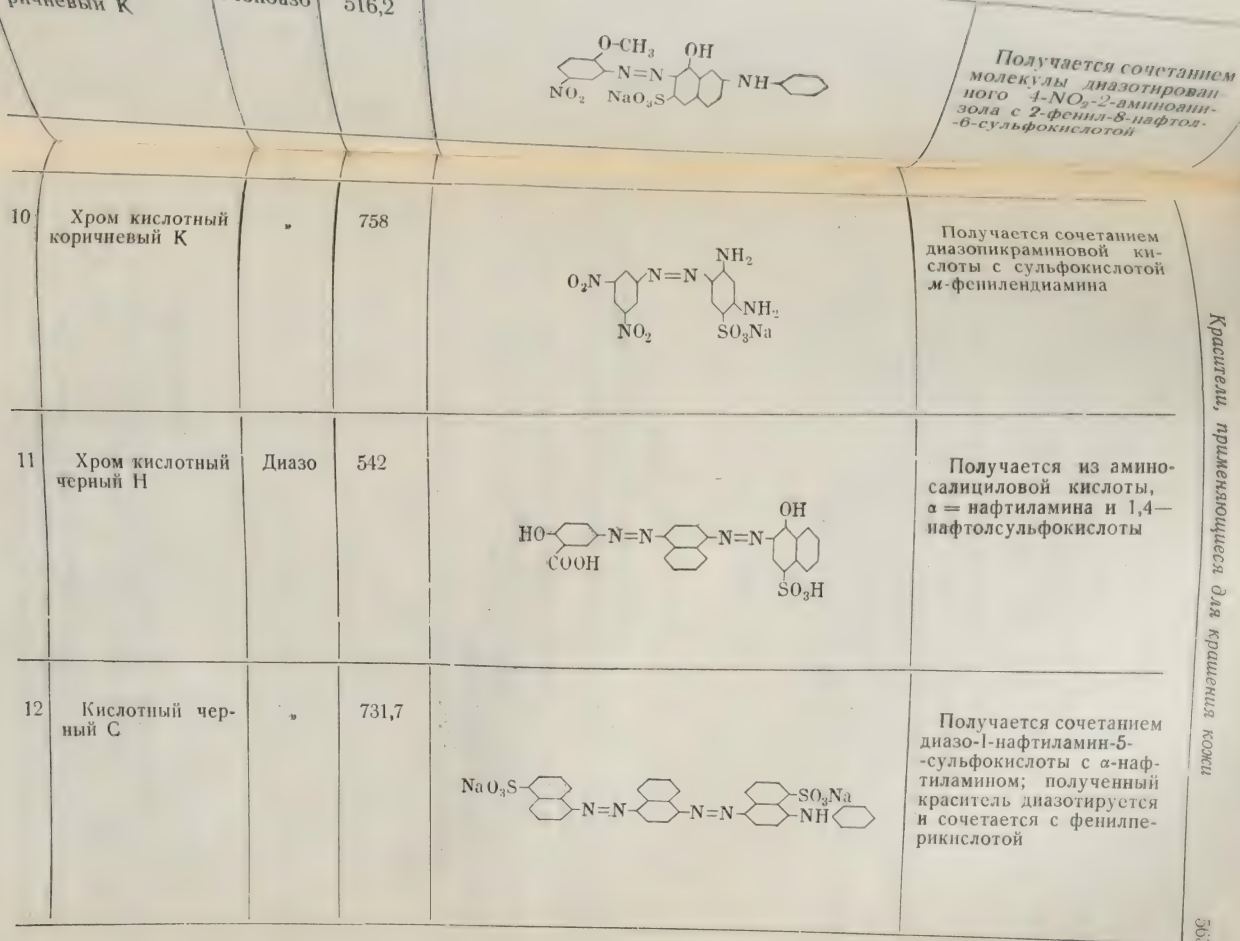 ричневый К
516,2
O-CH₃ OH
N=N NH
NO₂ NaO₃S
Получается сочетанием
молекулы диазотирован
ного 4-NO₂-2-аминоани-
зола с 2-фенил-8-нафтол-
-6-сульфокислотой
10 Хром кислотный „ 758
коричневый К
NH₂
O₂N N=N
NH₂
NO₂ SO₃Na
Получается сочетанием
диазопикраминовой ки-
слоты с сульфокислотой
м-фенилендиамина
11 Хром кислотный Диазо 542
черный Н
OH
HO N=N N=N
COOH
SO₃H
Получается из амино-
салициловой кислоты,
α = нафтиламина и 1,4—
нафтолсульфокислоты
12 Кислотный чер- „ 731,7
ный С
NaO₃S SO₃Na
N=N N=N NH
Получается сочетанием
диазо-1-нафтиламин-5-
-сульфокислоты с α-наф-
тиламином; полученный
краситель диазотируется
и сочетается с фенилпе-
рикислотой
Красители, применяющиеся для крашения кожи